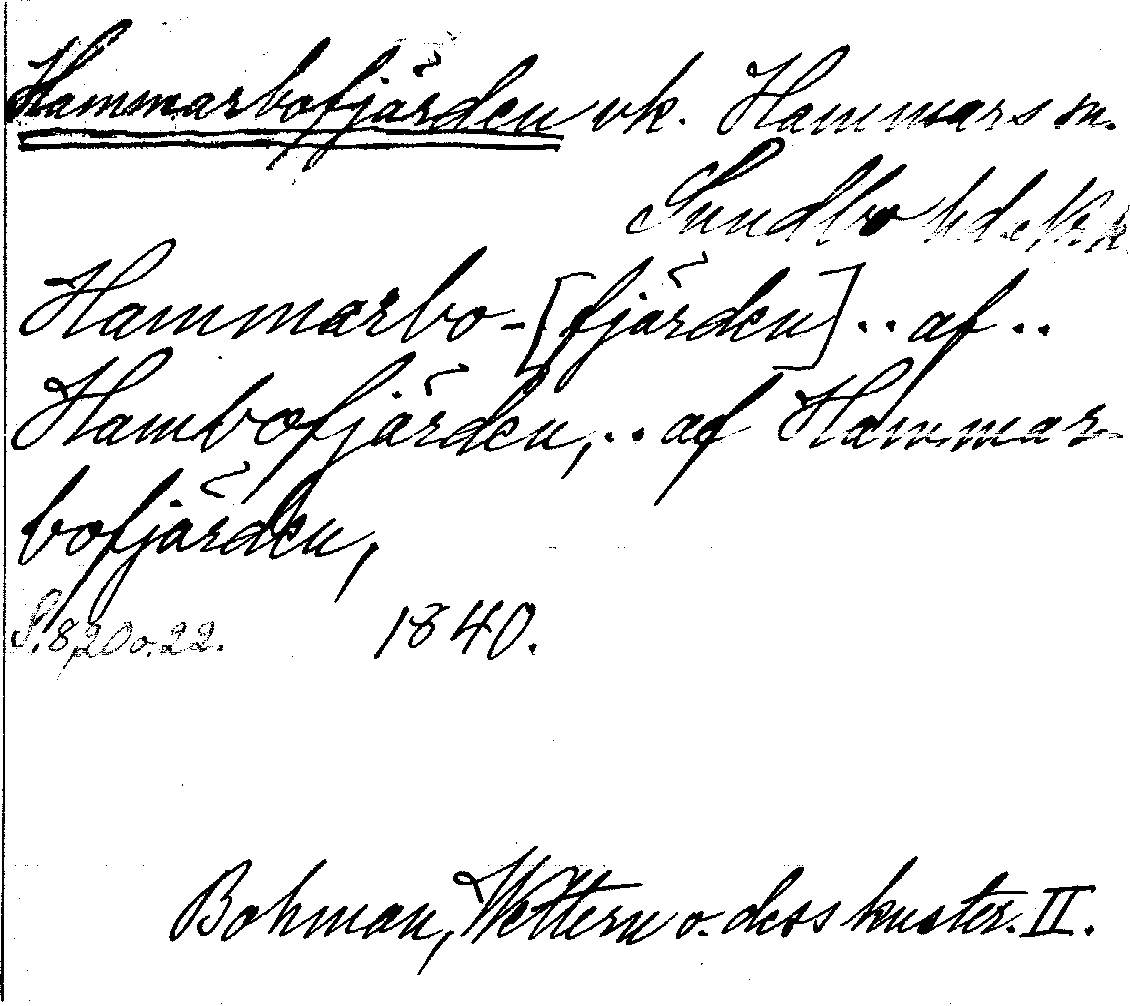 Hammarbofjärden vk. Hammars sn.
Sundbo hd. N. k.
Hammarbo-[fjärden] .. af ..
Hambofjärden, .. af Hammar-
bofjärden,
S. 8, 20 o. 22. 1840.
Bohman, Wettern o. dess kuster. II.